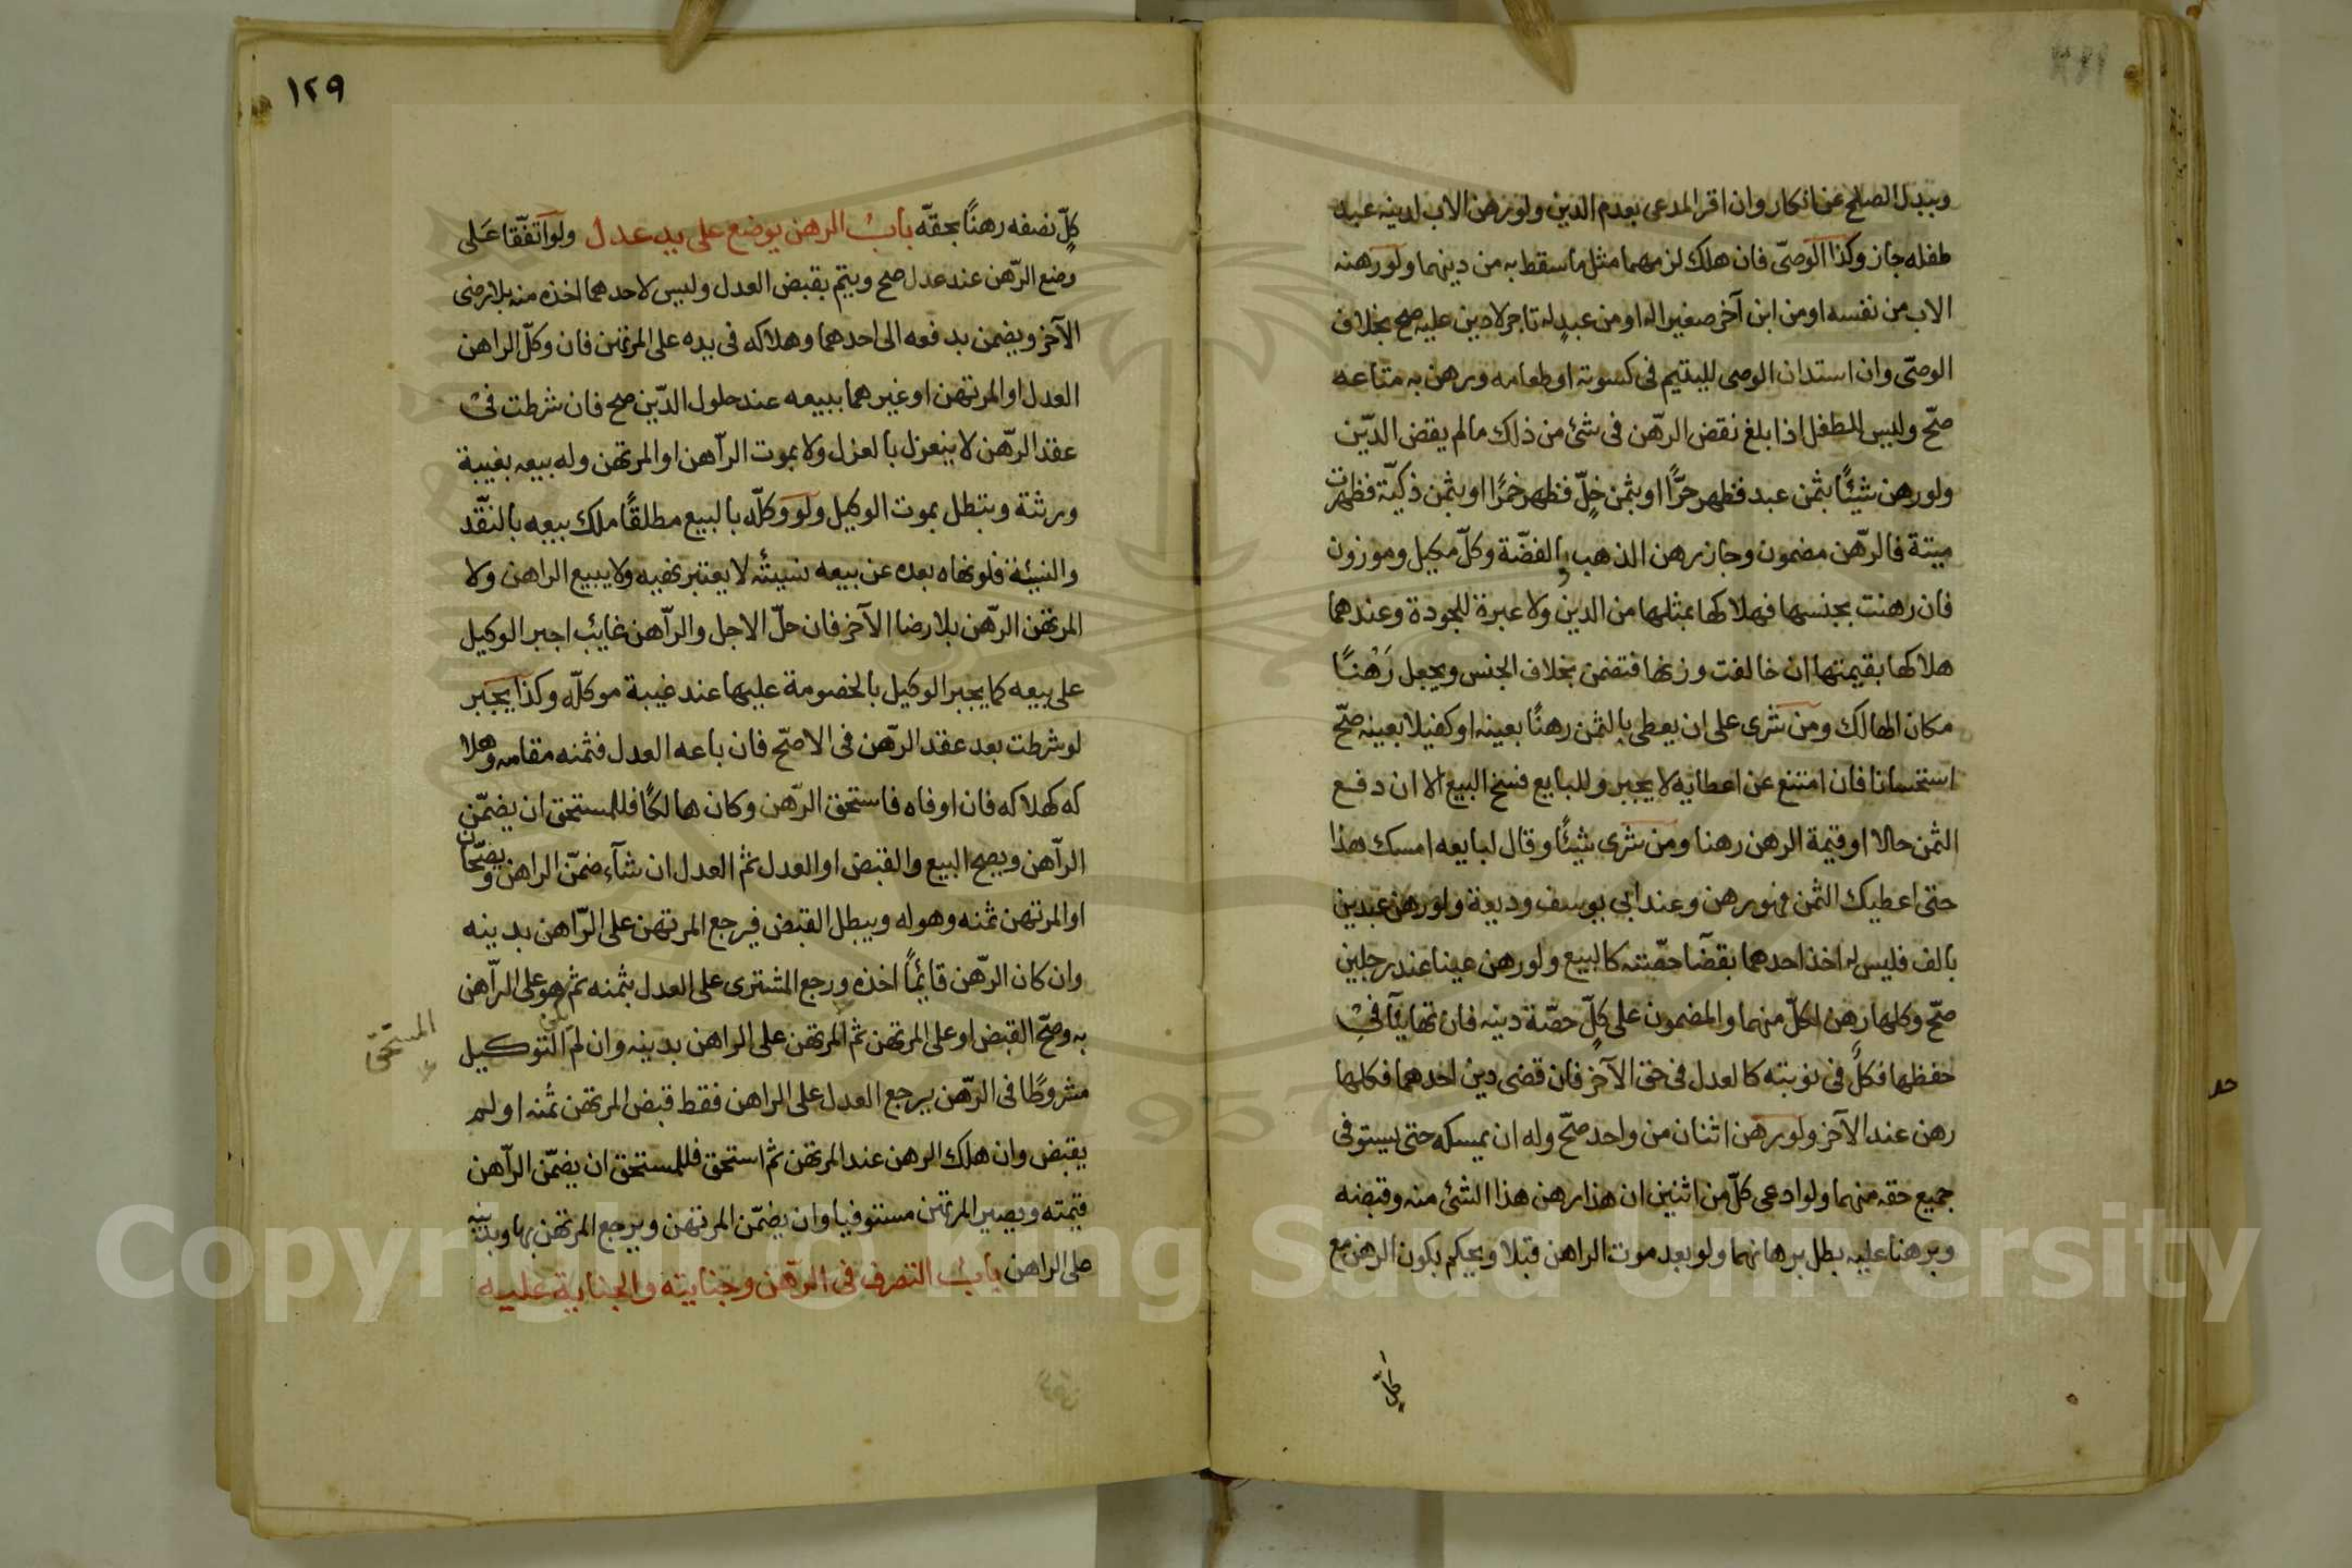 وببدل الصلح عن انكار وان اقر المدعى بعدم الدين ولو رهن الاب لدينه عبد
طفله جاز وكذا الوصىّ فان هلك لزمهما مثل ما سقط به من دينهما ولو رهنه
الاب من نفسه او من ابن آخر صغير له او من عبدٍ له تاجر لا دين عليه صح بخلاف
الوصىّ وان استدان الوصى لليتيم فى كسوته او طعامه ورهن به متاعه
صحّ وليس للطفل اذا بلغ نقض الرّهن فى شئ من ذلك مالم يقض الدّين
ولو رهن شيئًا بثمن عبد فظهر حرًّا او بثمن خلّ فظهر خمرًا او بثمن ذكيّة فظهرت
ميتة فالرّهن مضمون وجاز رهن الذهب والفضّة وكلّ مكيل وموزون
فان رهنت بجنسها فهلاكها بمثلها من الدين ولا عبرة للجودة وعندهما
هلاكها بقيمتها ان خالفت وزنها فتضمن بخلاف الجنس ويجعل رَهْنًا
مكان الهالك ومن شرى على ان يعطى بالثمن رهنًا بعينه او كفيلا بعينه صحّ
استحسانا فان امتنع عن اعطايه لا يجبر وللبايع فسخ البيع الا ان دفع
الثمن حالا او قيمة الرهن رهنا ومن شرى شيئًا وقال لبايعه امسك هذا
حتى اعطيك الثمن فهو رهن وعند ابى يوسف وديعة ولو رهن عبدين
بالف فليس له اخذ احدهما بقضآ حصّته كالبيع ولو رهن عينا عند رجلين
صحّ وكلها رهن لكلّ منهما والمضمون على كلٍّ حصّة دينه فان تهايئآ فى
حفظها فكلٌّ فى نوبته كالعدل فى حق الآخر فان قضى دين احدهما فكلها
رهن عند الآخر ولو رهن اثنان من واحد صحّ وله ان يمسكه حتى يستوفى
جميع حقه منهما ولو ادعى كلّ من اثنين ان هذا رهن هذا الشئ منه وقبضه
وبرهنا عليه بطل برهانهما ولو بعد موت الراهن قبلا ويحكم بكون الرهن مع
كلٍّ
١٢٩
كلٍّ نصفه رهنًا بحقّه بابُ الرهن يوضع على يد عدل ولو اتفّقا عَلى
وضع الرّهن عند عدل صح ويتم بقبض العدل وليس لاحدهما اخذه منه بلا رضى
الآخر ويضمن بدفعه الى احدهما وهلاكه فى يده على المرتهن فان وكّل الراهن
العدل او المرتهن او غيرهما ببيعه عند حلول الدّين صح فان شرطت فى
عقد الرّهن لا ينعزل بالعزل ولا بموت الرآهن او المرتهن وله بيعه بغيبة
ورثتة وتبطل بموت الوكيل ولو وكلّه بالبيع مطلقًا ملك بيعه بالنقّد
والنيئة فلو نهاه بعده عن بيعه نسيئة لا يعتبر نهيه ولا يبيع الراهن ولا
المرتهن الرّهن بلا رضا الآخر فان حلّ الاجل والرآهن غايب اجبر الوكيل
على بيعه كما يجبر الوكيل بالخصومة عليها عند غيبة موكلّه وكذا يجبر
لو شرطت بعد عقد الرّهن فى الاصّح فان باعه العدل فثمنه مقامه وهلا
كه كهلاكه فان اوفاه فاستحق الرّهن وكان هالكًا فللمستحق ان يضمّن
الرآهن ويصح البيع والقبض او العدل ثم العدل ان شآء ضمّن الراهن ويصحّان
او المرتهن ثمنه وهو له ويبطل القبض فيرجع المرتهن على الرّاهن بدينه
وان كان الرّهن قايمًا اخذه ورجع المشترى على العدل بثمنه ثم هو على الرآهن
المستحّق
به وصحّ القبض او على المرتهن ثم المرتهن على الراهن بدينه وان لم يكن التوكيل
مشروطًا فى الرّهن يرجع العدل على الراهن فقط قبض المرتهن ثمنه او لم
يقبض وان هلك الرهن عند المرتهن ثم استحق فللمستحق ان يضمّن الرآهن
قيمته ويصير المرتهن مستوفيا وان يضمّن المرتهن ويرجع المرتهن بها وبدينه
على الراهن بابُ التصرف فى الرّهن وجنايته والجناية عليه
Copyright © King Saud University
1957